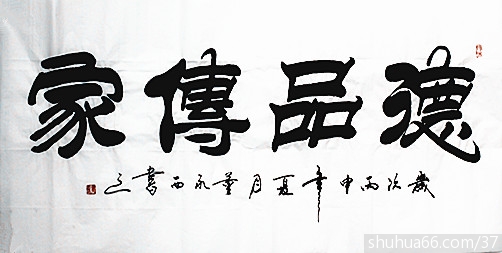 德品傳家
歲次丙申年夏月董永西書
shuhua66.com/37